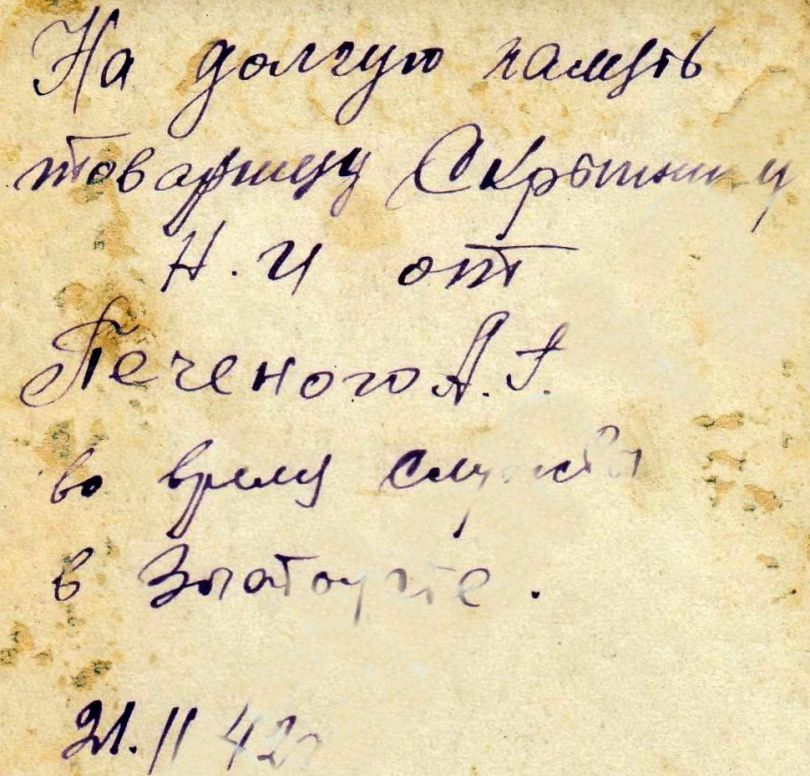 На долгую память
товарищу Скрыннику
Н. И от
Печеного А. Г.
во время службы
в Златоусте.
21. II 42г